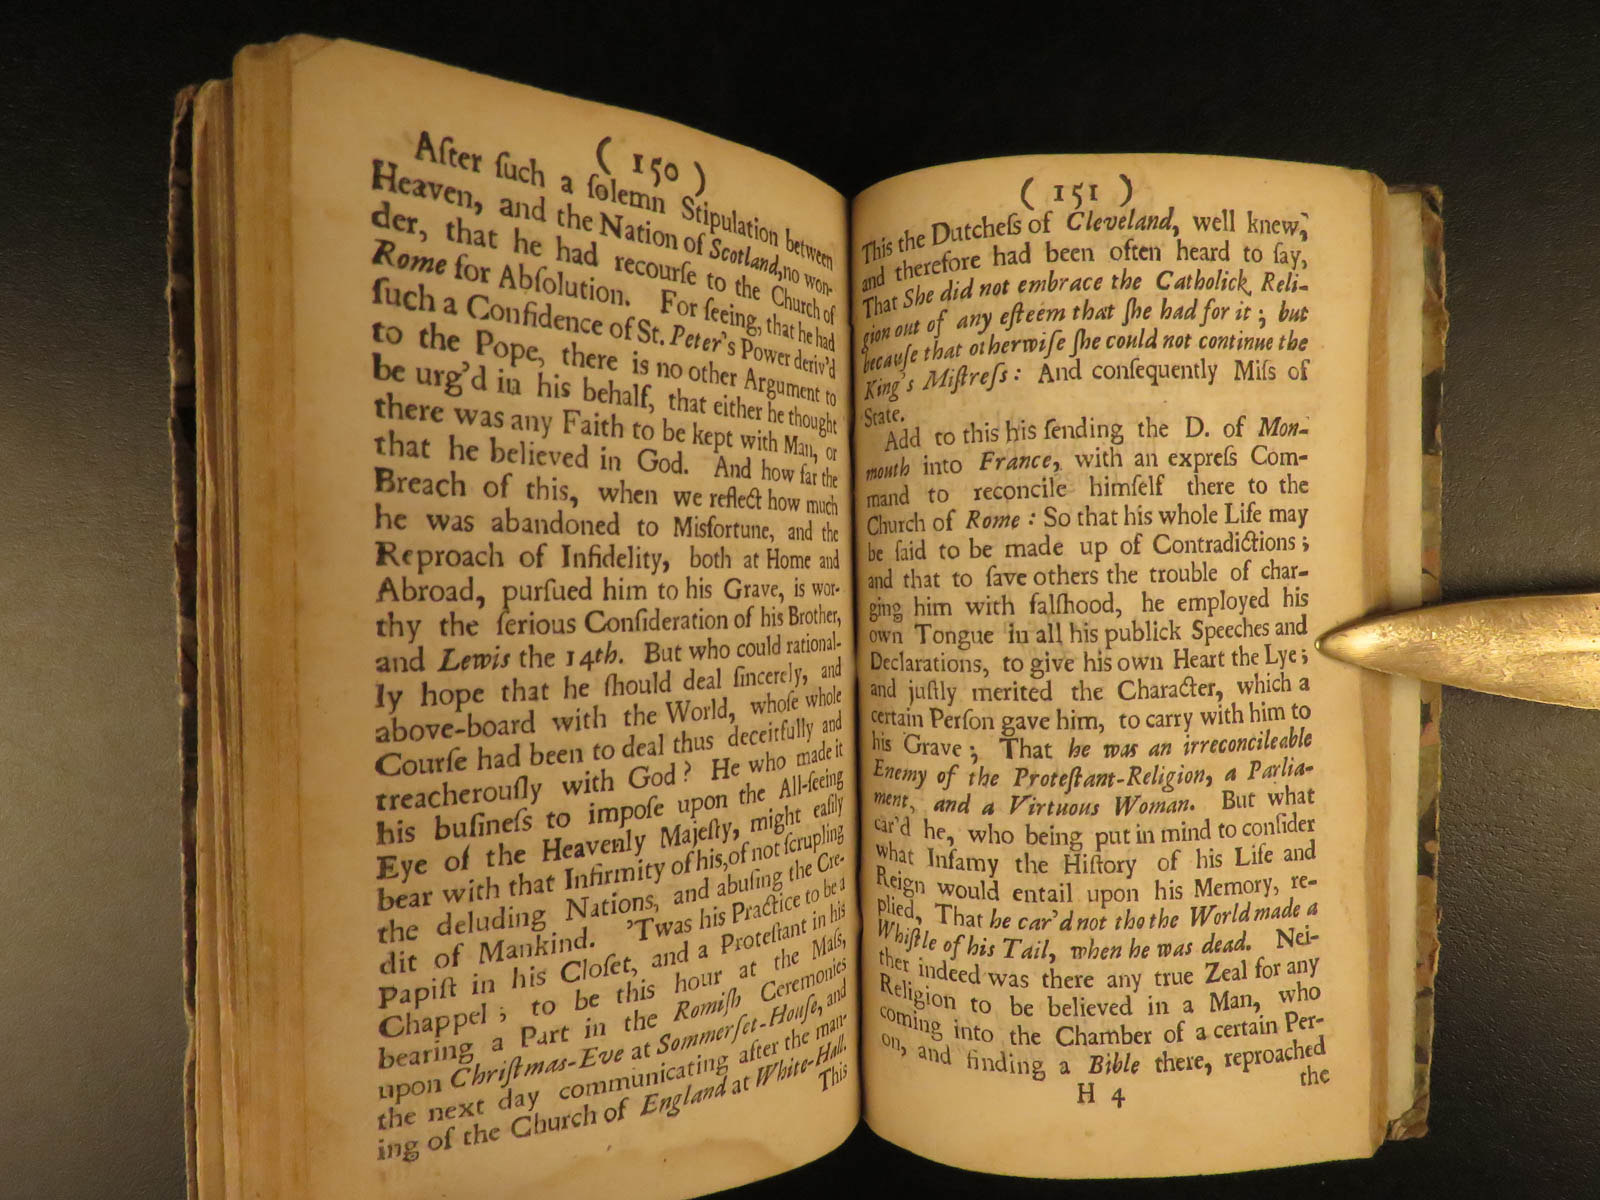 ( 150 )
After ſuch a ſolemn Stipulation between
Heaven, and the Nation of Scotland, no won-
der, that he had recourſe to the Church of
Rome for Abſolution. For ſeeing, that he had
ſuch a Confidence of St. Peter's Power deriv'd
to the Pope, there is no other Argument to
be urg'd in his behalf, that either he thought
there was any Faith to be kept with Man, or
that he believed in God. And how far the
Breach of this, when we reflect how much
he was abandoned to Misfortune, and the
Reproach of Infidelity, both at Home and
Abroad, purſued him to his Grave, is wor-
thy the ſerious Conſideration of his Brother,
and Lewis the 14th. But who could rational-
ly hope that he ſhould deal ſincerely, and
above-board with the World, whoſe whole
Courſe had been to deal thus deceitfully and
treacherouſly with God? He who made it
his buſineſs to impoſe upon the All-ſeeing
Eye of the Heavenly Majeſty, might eaſily
bear with that Infirmity of his, of not ſcrupling
the deluding Nations, and abuſing the Cre-
dit of Mankind. 'Twas his Practice to be a
Papiſt in his Cloſet, and a Proteſtant in his
Chappel; to be this hour at the Maſs,
bearing a Part in the Romiſh Ceremonies
upon Chriſtmas-Eve at Sommerſet-Houſe, and
the next day communicating after the man-
ing of the Church of England at White-Hall.
This
( 151 )
This the Dutcheſs of Cleveland, well knew,
and therefore had been often heard to ſay,
That She did not embrace the Catholick Reli-
gion out of any eſteem that ſhe had for it; but
becauſe that otherwiſe ſhe could not continue the
King's Miſtreſs: And conſequently Miſs of
State.
Add to this his ſending the D. of Mon-
mouth into France, with an expreſs Com-
mand to reconcile himſelf there to the
Church of Rome: So that his whole Life may
be ſaid to be made up of Contradictions;
and that to ſave others the trouble of char-
ging him with falſhood, he employed his
own Tongue in all his publick Speeches and
Declarations, to give his own Heart the Lye;
and juſtly merited the Character, which a
certain Perſon gave him, to carry with him to
his Grave; That he was an irreconcileable
Enemy of the Proteſtant-Religion, a Parlia-
ment, and a Virtuous Woman. But what
car'd he, who being put in mind to conſider
what Infamy the Hiſtory of his Life and
Reign would entail upon his Memory, re-
plied, That he car'd not tho the World made a
Whiſtle of his Tail, when he was dead. Nei-
ther indeed was there any true Zeal for any
Religion to be believed in a Man, who
coming into the Chamber of a certain Per-
on, and finding a Bible there, reproached
H 4
the